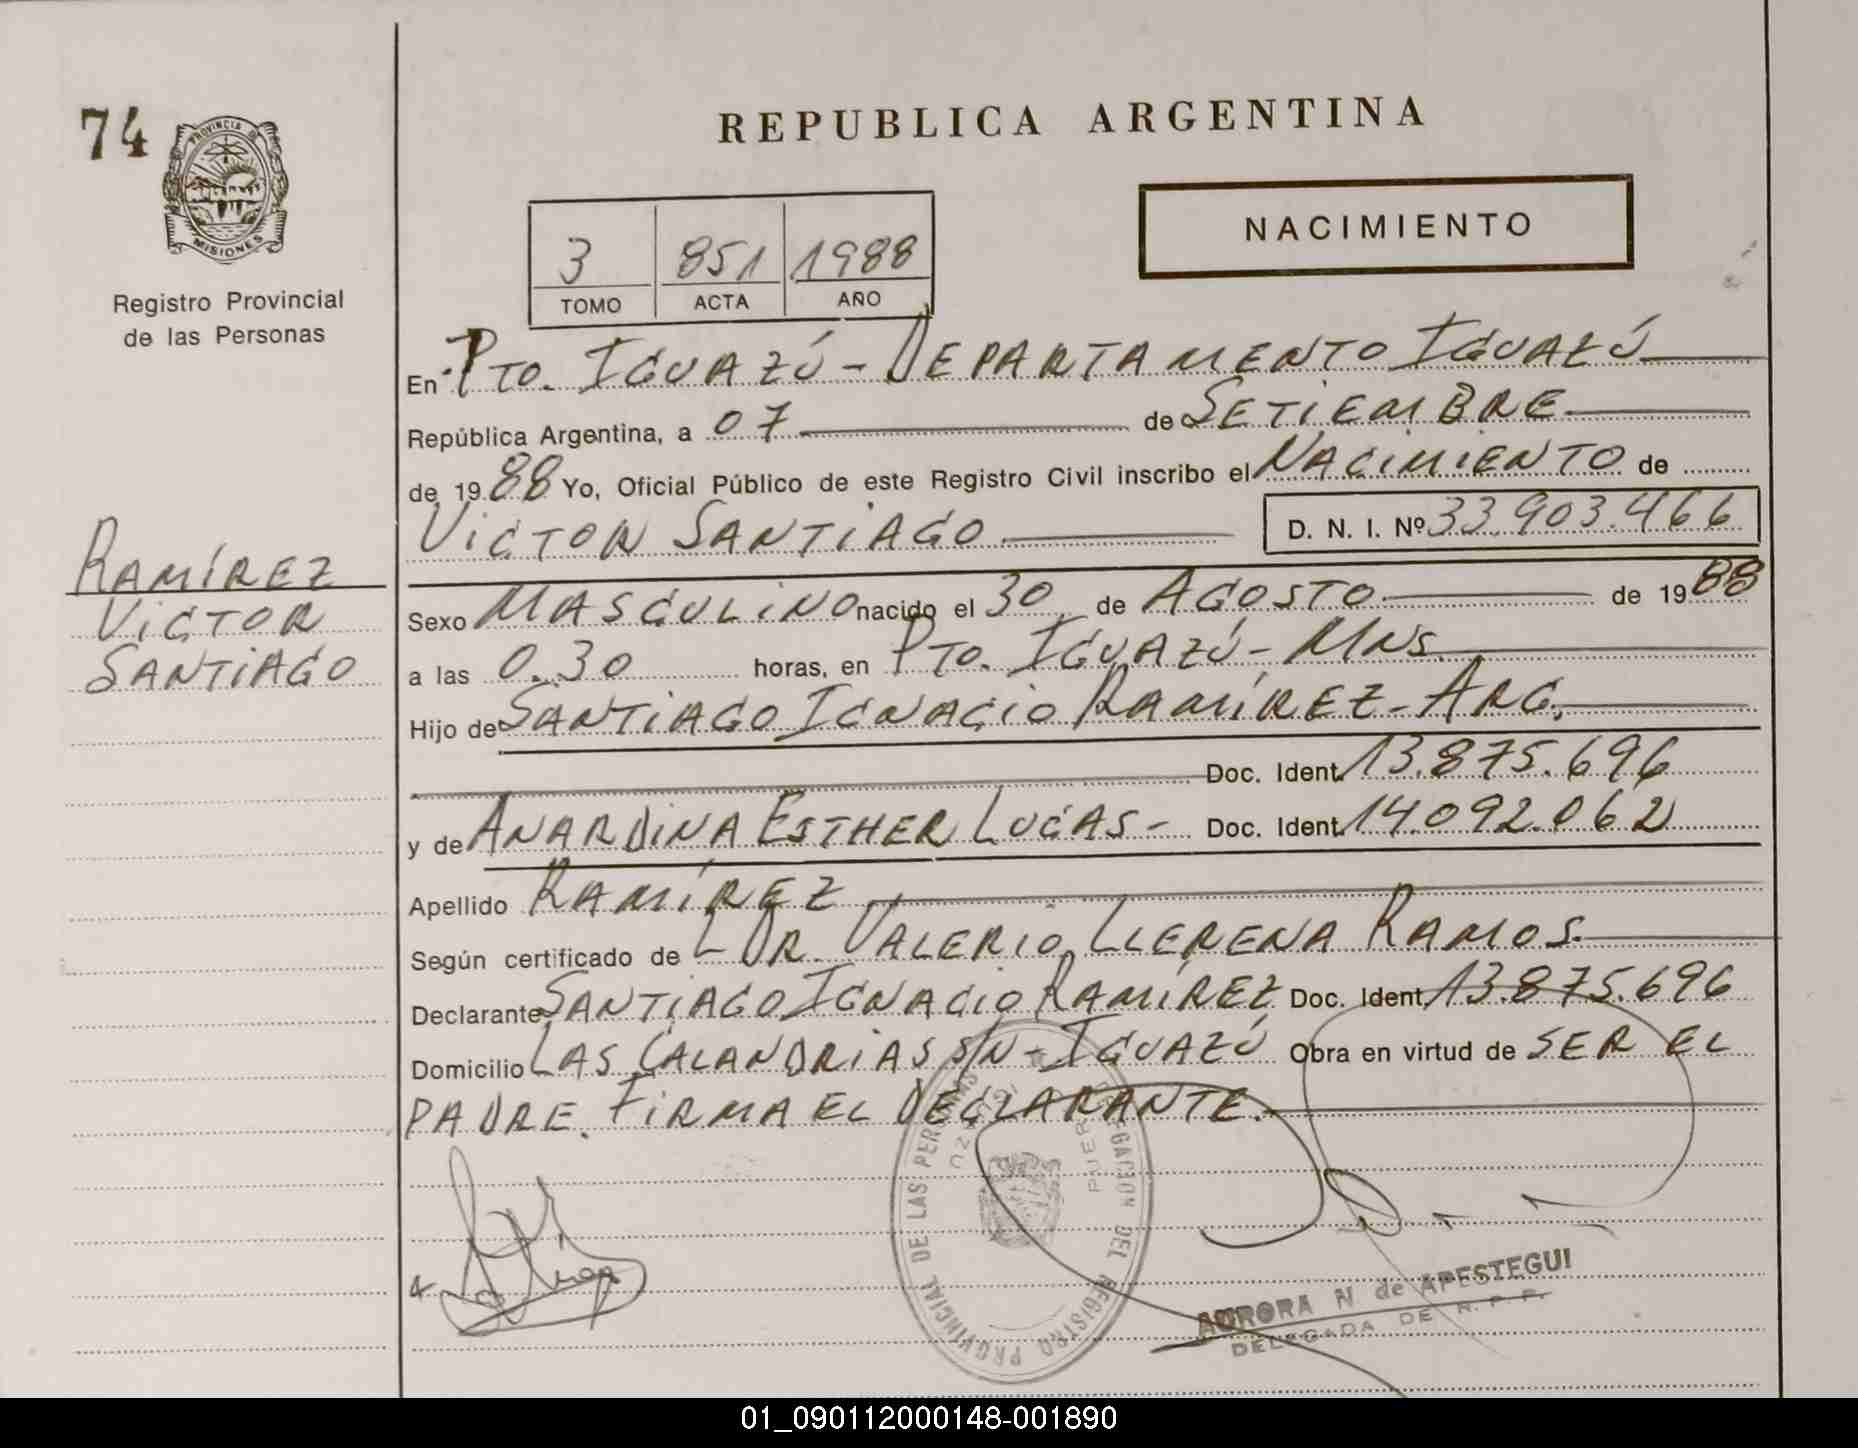 74
PROVINCIA DE
MISIONES
Registro Provincial
de las Personas
REPUBLICA ARGENTINA
NACIMIENTO
3 851 1988
TOMO ACTA AÑO
En PTO. IGUAZÚ - DEPARTAMENTO IGUAZÚ
República Argentina, a 07 de SETIEMBRE
de 1988 Yo, Oficial Público de este Registro Civil inscribo el NACIMIENTO de
VICTOR SANTIAGO D. N. I. Nº 33.903.466
RAMÍREZ
VICTOR
SANTIAGO
Sexo MASCULINO nacido el 30 de AGOSTO de 1988
a las 0.30 horas, en PTO. IGUAZÚ - MNS.
Hijo de SANTIAGO IGNACIO RAMÍREZ - ARG.
Doc. Ident. 13.875.696
y de ANARDINA ESTHER LUCAS - Doc. Ident. 14.092.062
Apellido RAMÍREZ
Según certificado de DR. VALERIO LLERENA RAMOS.
Declarante SANTIAGO IGNACIO RAMÍREZ Doc. Ident. 13.875.696
Domicilio LAS CALANDRIAS S/N - IGUAZÚ Obra en virtud de SER EL
PADRE. FIRMA EL DECLARANTE.
DELEGACION DEL REGISTRO PROVINCIAL DE LAS PERSONAS
PUERTO IGUAZU
AURORA N de APESTEGUI
DELEGADA DE R. P. P.
01_090112000148-001890